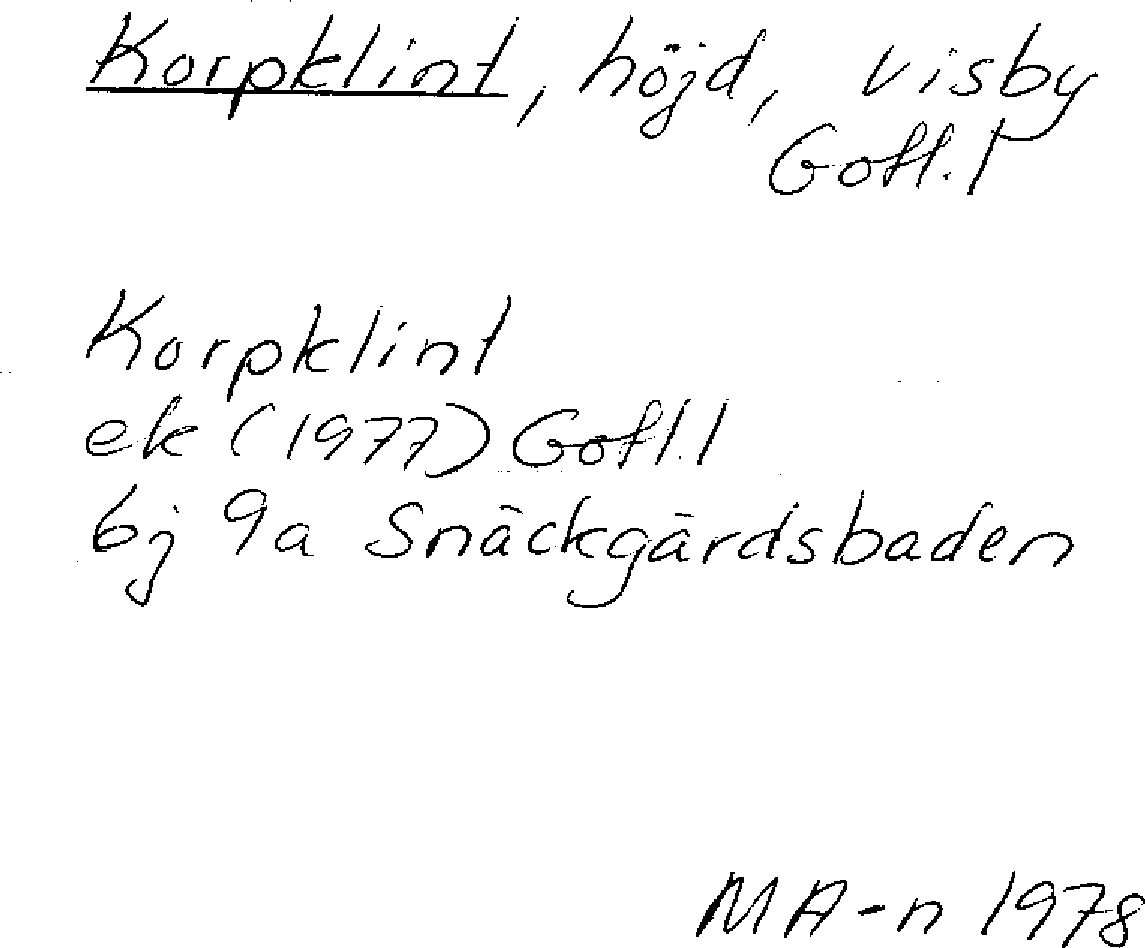 Korpklint, höjd, Visby
Gotl. l
Korpklint
ek (1977) Gotl. l
6j 9a Snäckgärdsbaden
MA-n 1978